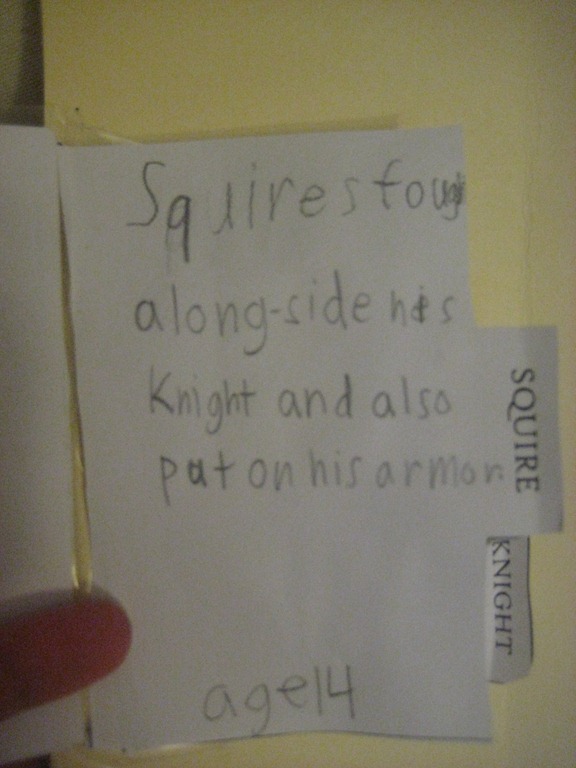 Squires foug
along-side his
Knight and also
put on his armor
age 14
SQUIRE
KNIGHT